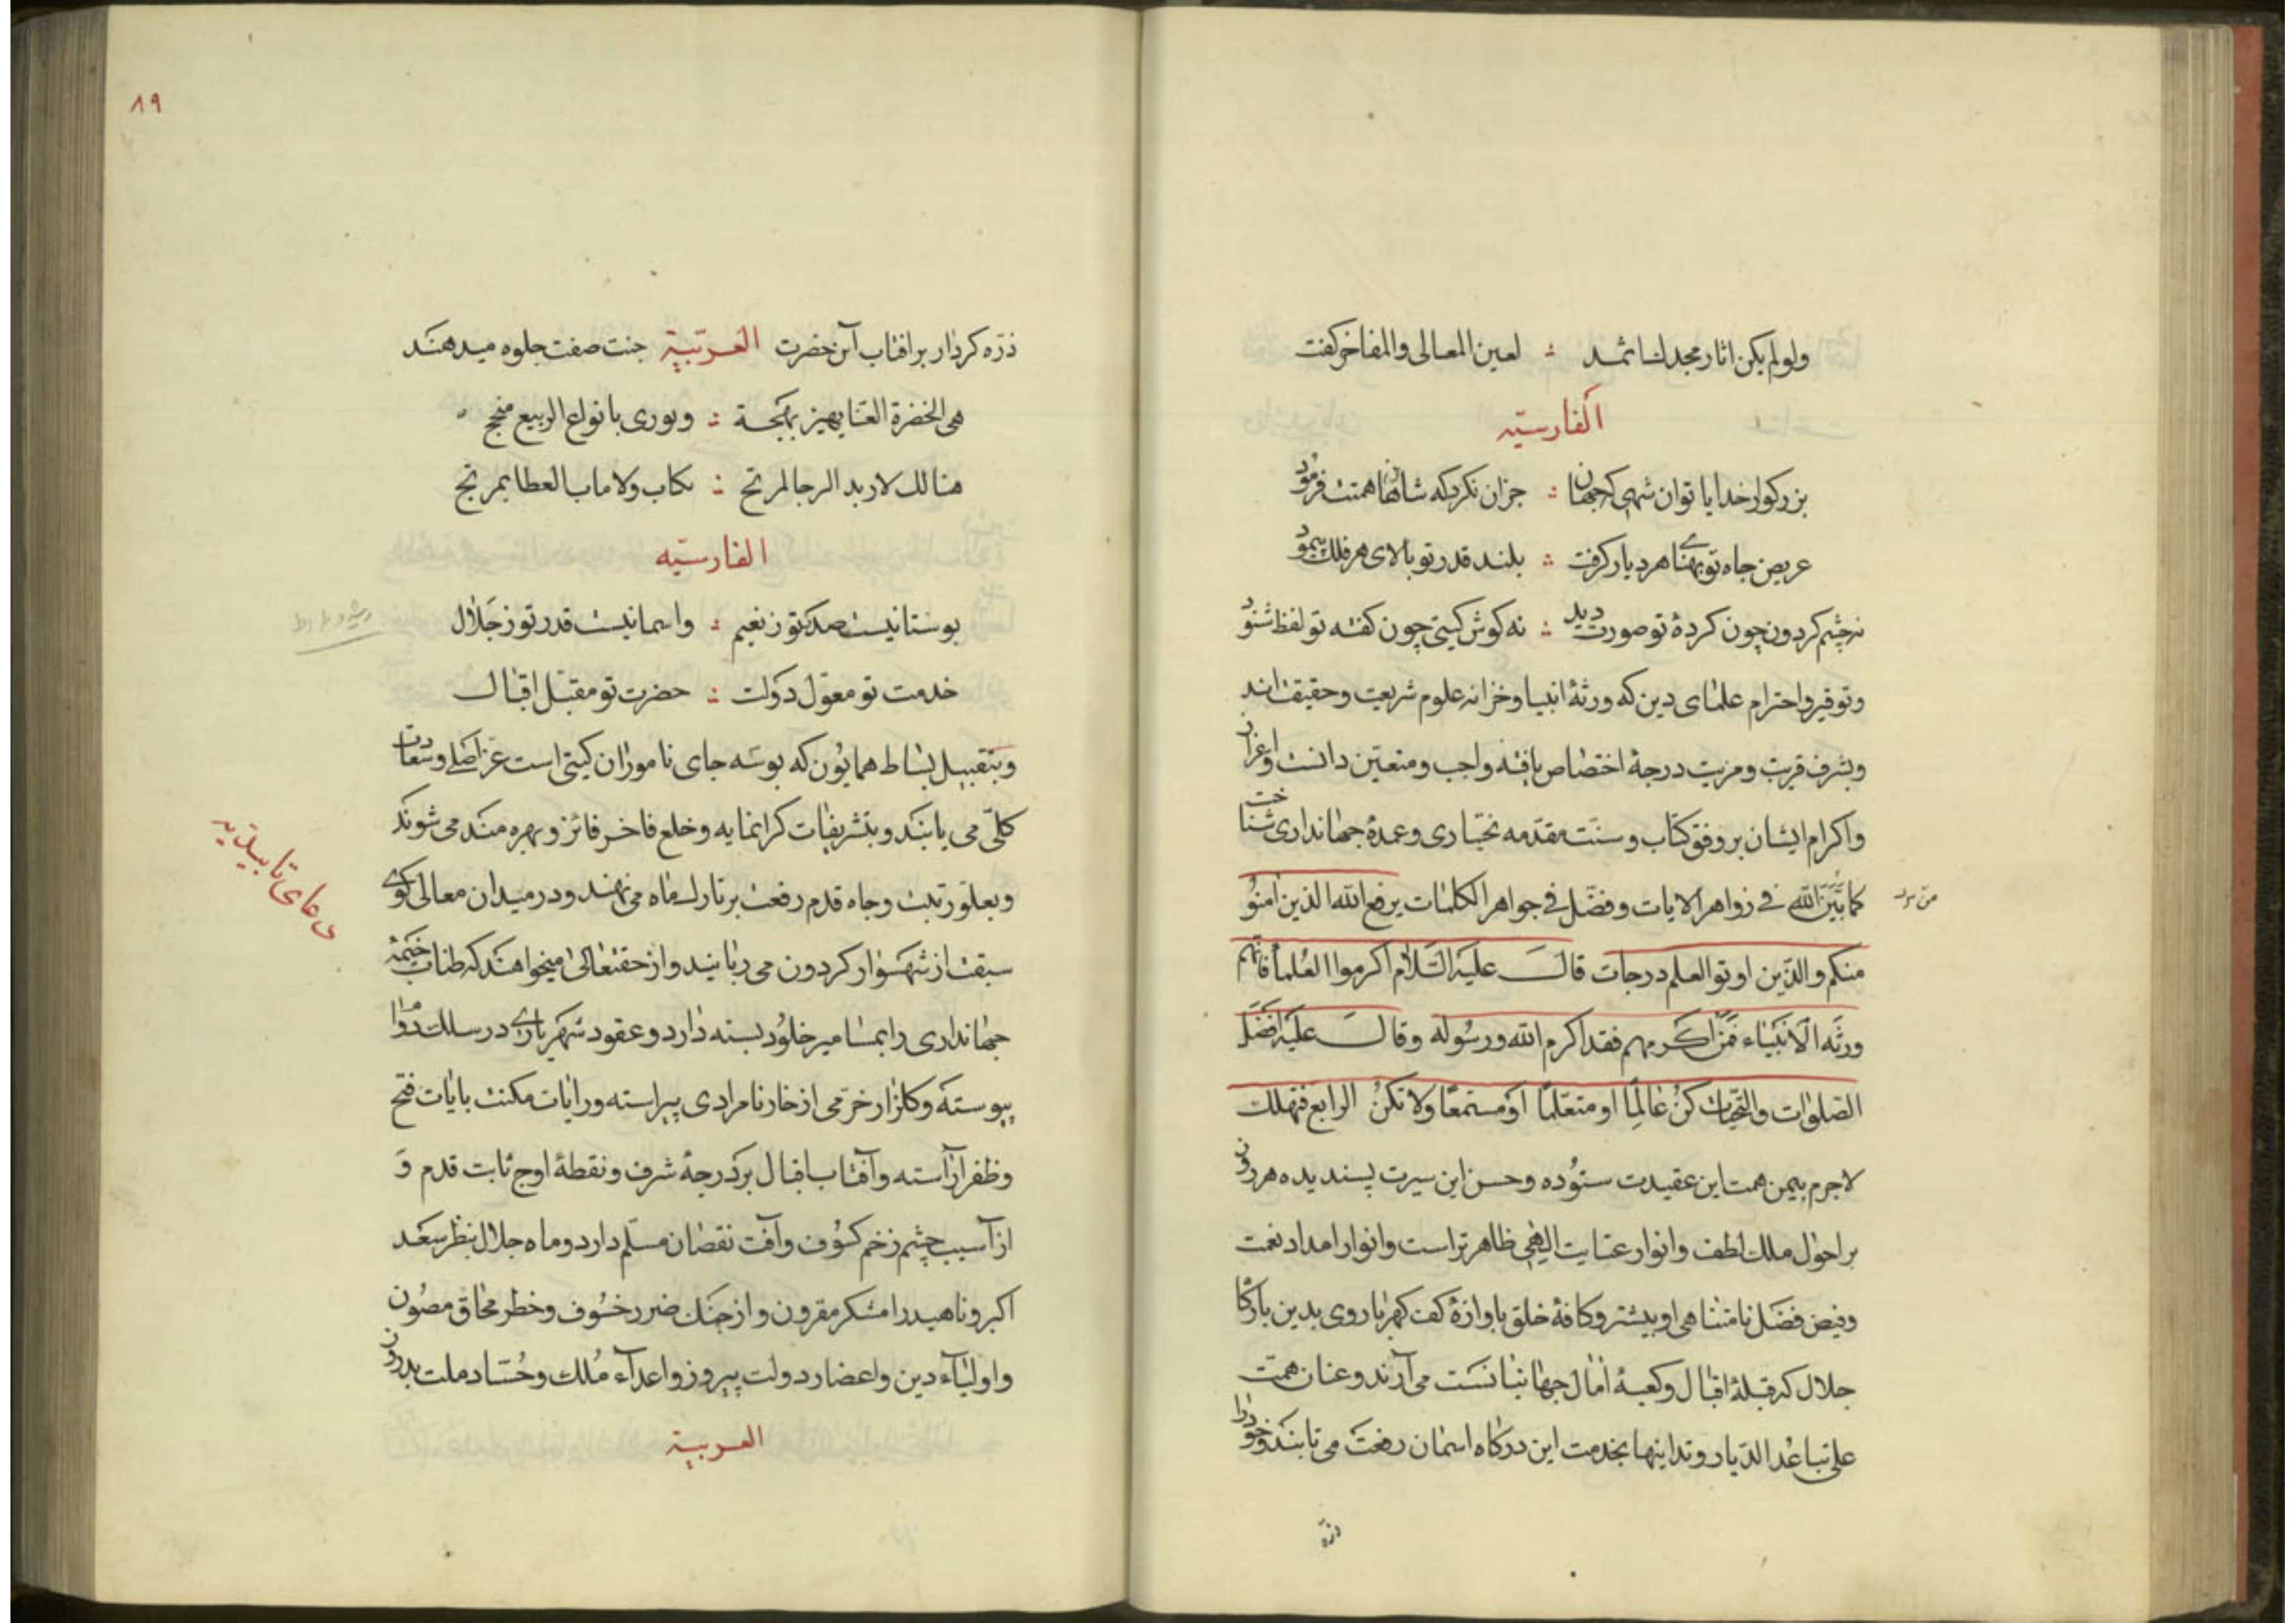 ولو لم یکن اثار مجدك اثمد ∴ لعین المعالی والمفاخر کفت
الفارسیّه
بزرکوار خدایا توان شهی که جهان ∴ جز ان نکرد که شاها همتت فرمود
عریض جاه تو پهنای هر دیار کرفت ∴ بلند قدر تو بالای هر فلك پیمود
نه چشم کردون چون کردهٔ تو صورت دید ∴ نه کوش کیتی چون کفته تو لفظ شنود
وتوقیر واحترام علمای دین که ورثهٔ انبیا وخزانه علوم شریعت وحقیقت اند
وبشرف قربت ومزیت درجهٔ اختصاص یافته واجب ومتعیّن دانست واعزاز
واکرام ایشان بر وفق کتاب وسنّت مقدّمه بختیاری وعمدهٔ جهانداری شناخت
کما بَیَّنَ الله فی زواهر الایات وفضّل فی جواهر الکلمات یرفع الله الذین امنوُ
منکم والذّین اوتو العلم درجات قالَ علیه السّلام اکرموا العُلماُ فانهم
ورثه الانبیاء فَمَن اکَرمهم فقد اکرم الله ورسُوله وقالَ علیه افضَل
الصّلوات والتحیّات کنُ عٰالِمًا او متعّلمًا او مُستمعًا ولا تکنُ الرابع فتهلك
لاجرم بیمن همت این عقیدت ستوُده وحسن این سیرت پسندیده هر روز
بر احوال ملك لطف وانوار عنایت الٰهی ظاهر تر است وانوار امداد نعمت
وفیض فضَل نامتناهی او بیشتر وکافهٔ خلق باوازهٔ کف کهربار روی بدین بارکاه
جلال که قبلهٔ اقبال وکعبهٔ اٰمٰال جهانیانسَت می آرند وعنان همّت
علی تباعُد الدّیار وتداینها بخدمت این درکاه اسمان رفعت می تابند وخودرا
ذرّه
من نور
٨٩
ذرّه کردار بر افتاب آن حضرت العربّیة جنت صفت جلوه میدهند
هی الخضرة الغنا بهجة ∴ ونوری بانواع الربیع منجح
هنالك لا ربد الرجا لمرتج ∴ نکاب ولا ماب العطا بمرتج
الفارسیّه
بوستانیست صدر تو ز نعیم ∴ واسمانیست قدر تو ز جَلال
خدمت تو معوّل دَولت ∴ حضرت تو مقبَل اقبال
وبتقبیل بسَاط همایوُن که بوسَه جای ناموران کیتی است عزّ اصَلی وسعادت
کلّی می یابَند وبتشریفات کرانمایه وخلع فاخر فائز وبهره مند می شوند
وبعلو رتبت وجاه قدم رفعت بر تارك ماه می نهند ودر میدان معالی کوی
سبقت از شهسَوار کردون می ربایند واز حقتعالی میخواهند که طناب خیَمهٔ
جهانداری را بمسامیر خلوُد بسته دارد وعقود شهریاری در سلك دوام
پیوستَه وکلزار خرّمی از خار نامرادی پیراسته ورایات مکنت بایات فتح
وظفر آراسته وآفتاب اقبال بر درجهٔ شرف ونقطهٔ اوج ثابت قدم وَ
از آسیب چشم زخم کسوُف وآفت نقصان مسلّم دارد وماه جلال بنظر سعَد
اکبر وناهید رامشکر مقرون واز چنك ضرر خسُوف وخطر محاق مصُون
واولیاء دین واعضاد دولت پیروز واعدآء مُلك وحُسّاد ملت بدروز
العربیة
دعای تابیدیه